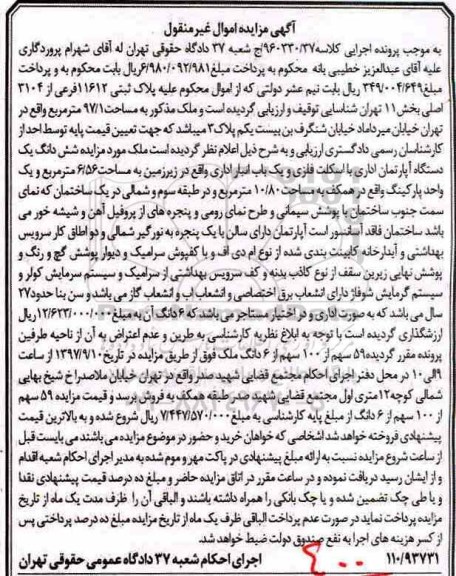 آگهی مزایده اموال غیر منقول
به موجب پرونده اجرایی کلاسه ۹۶۰۳۳۰/۳۷/ج شعبه ۳۷ دادگاه حقوقی تهران له آقای شهرام پروردگاری
علیه آقای عبدالعزیز خطیبی بانه محکوم به پرداخت مبلغ ۶/۹۸۰/۰۹۲/۹۸۱ ریال بابت محکوم به و پرداخت
مبلغ ۳۴۹/۰۰۴/۶۴۹ ریال بابت نیم عشر دولتی که از اموال محکوم علیه پلاک ثبتی ۱۱۶۱۲ فرعی از ۳۱۰۴
اصلی بخش ۱۱ تهران شناسایی توقیف و ارزیابی گردیده است و ملک مذکور به مساحت ۹۷/۱ مترمربع واقع در
تهران خیابان میرداماد خیابان شنگرف بن بیست یکم پلاک ۳ میباشد که جهت تعیین قیمت پایه توسط احد از
کارشناسان رسمی دادگستری ارزیابی و به شرح ذیل اعلام نظر گردیده است ملک مورد مزایده شش دانگ یک
دستگاه آپارتمان اداری با اسکلت فلزی و یک باب انبار اداری واقع در زیرزمین به مساحت ۶/۵۶ مترمربع و یک
واحد پارکینگ واقع در همکف به مساحت ۱۰/۸۰ مترمربع و در طبقه سوم و شمالی در یک ساختمان که نمای
سمت جنوب ساختمان با پوشش سیمانی و طرح نمای رومی و پنجره های از پروفیل آهن و شیشه خور می
باشد ساختمان فاقد آسانسور است آپارتمان دارای سالن با یک پنجره به نورگیر شمالی و دو اطاق کار سرویس
بهداشتی و آبدارخانه کابینت بندی شده از نوع ام دی اف و با کفپوش سرامیک و دیوار پوشش گچ و رنگ و
پوشش نهایی زیرین سقف از نوع کاذب بدنه و کف سرویس بهداشتی از سرامیک و سیستم سرمایش کولر و
سیستم گرمایش شوفاژ دارای انشعاب برق اختصاصی و انشعاب اب و انشعاب گاز می باشد و سن بنا حدود ۲۷
سال می باشد که به صورت اداری و در اختیار مستاجر می باشد که ۶ دانگ آن به مبلغ ۱۲/۶۲۳/۰۰۰/۰۰۰ ریال
ارزشگذاری گردیده است با توجه به ابلاغ نظریه کارشناسی به طرین و عدم اعتراض به آن از ناحیه طرفین
پرونده مقرر گردیده ۵۹ سهم از ۱۰۰ سهم از ۶ دانگ ملک فوق از طریق مزایده در تاریخ ۱۳۹۷/۹/۱۰ از ساعت
۹ الی ۱۰ در محل دفتر اجرای احکام مجتمع قضایی شهید صدر واقع در تهران خیابان ملاصدرا خ شیخ بهایی
شمالی کوچه ۱۲ متری اول مجتمع قضایی شهید صدر طبقه همکف به فروش برسد و قیمت مزایده ۵۹ سهم
از ۱۰۰ سهم از ۶ دانگ از مبلغ پایه کارشناسی به مبلغ ۷/۴۴۷/۵۷۰/۰۰۰ ریال شروع شده و به بالاترین قیمت
پیشنهادی فروخته خواهد شد اشخاصی که خواهان خرید و حضور در موضوع مزایده می باشند می بایست قبل
از ساعت شروع مزایده نسبت به ارائه مبلغ پیشنهادی در پاکت مهر و موم شده به مدیر اجرای احکام شعبه اقدام
و از ایشان رسید دریافت نموده و در ساعت مقرر در اتاق مزایده حاضر و مبلغ ده درصد قیمت پیشنهادی نقدا
و یا طی چک تضمین شده و یا چک بانکی را همراه داشته باشند و الباقی آن را ظرف مدت یک ماه از تاریخ
مزایده پرداخت نماید در صورت عدم پرداخت الباقی ظرف یک ماه از تاریخ مزایده مبلغ ده درصد پرداختی پس
از کسر هزینه های اجرا به نفع صندوق دولت ضبط خواهد شد.
۱۱۰/۹۳۷۳۱ اجرای احکام شعبه ۳۷ دادگاه عمومی حقوقی تهران